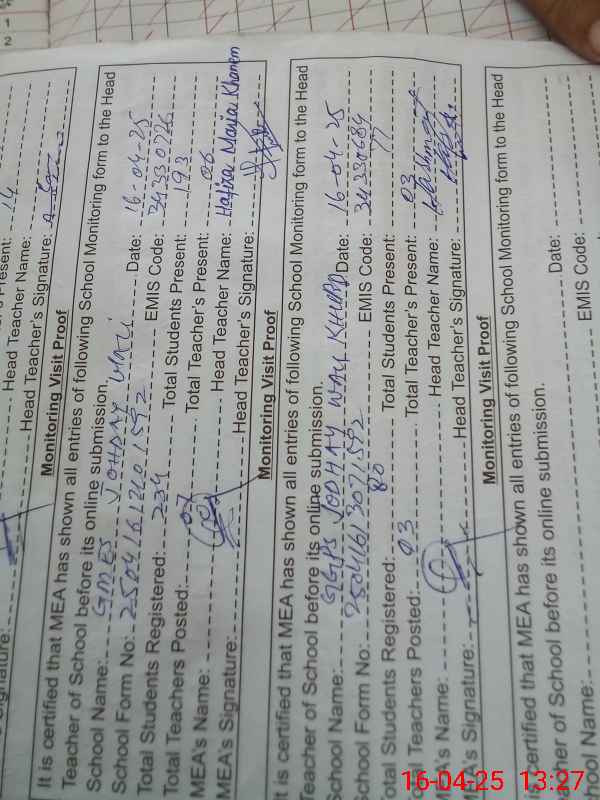 1
2
Present: 14
Head Teacher Name:
Head Teacher's Signature:
Monitoring Visit Proof
It is certified that MEA has shown all entries of following School Monitoring form to the Head
Teacher of School before its online submission.
School Name: GMES JOHDAY Date: 16-04-25
School Form No: EMIS Code: 34330726
Total Students Registered: 234 Total Students Present: 193
Total Teachers Posted: 07 Total Teacher's Present: 06
MEA's Name: Head Teacher Name: Hajira Khanem
MEA's Signature: Head Teacher's Signature:
Monitoring Visit Proof
It is certified that MEA has shown all entries of following School Monitoring form to the Head
Teacher of School before its online submission.
School Name: GGPS JODHAY WALI KHURD Date: 16-04-25
School Form No: 25041613071592 EMIS Code: 34330684
Total Students Registered: 80 Total Students Present: 77
Total Teachers Posted: 03 Total Teacher's Present: 03
MEA's Name: Head Teacher Name:
MEA's Signature: Head Teacher's Signature:
Monitoring Visit Proof
certified that MEA has shown all entries of following School Monitoring form to the Head
Teacher of School before its online submission.
School Name: Date:
EMIS Code:
16-04-25 13:27